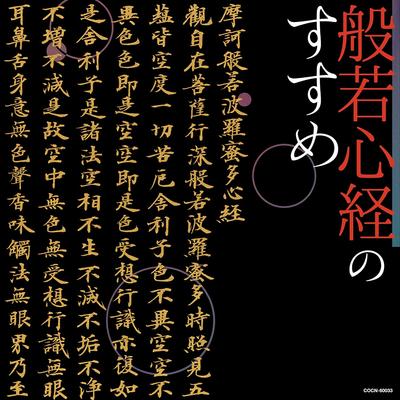 般若心経の
すすめ
摩訶般若波羅蜜多心経
觀自在菩薩行深般若波羅蜜多時照見五
蘊皆空度一切苦厄舍利子色不異空空不
異色色即是空空即是色受想行識亦復如
是舍利子是諸法空相不生不滅不垢不浄
不増不減是故空中無色無受想行識無眼
耳鼻舌身意無色聲香味觸法無眼界乃至
COCN-60033